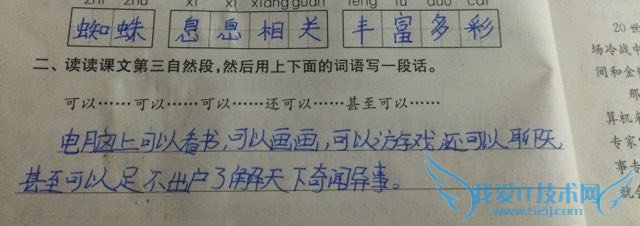 zhī zhū xī xī xiāng guān fēng fù duō cǎi
蜘蛛 息息相关 丰富多彩
二、读读课文第三自然段,然后用上下面的词语写一段话。
可以……可以……可以……还可以……甚至可以……
电脑上可以看书,可以画画,可以游戏,还可以聊天,
甚至可以足不出户了解天下奇闻异事。
20世
场冷战中
间和金
那
算机
专家
事专
就会
我爱IT技术网
www.52ij.com